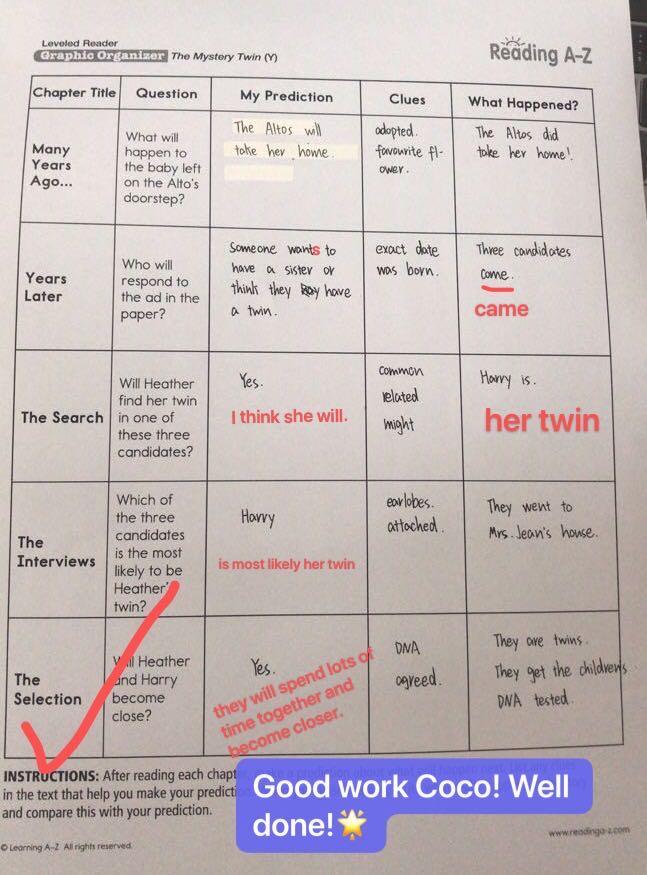 Leveled Reader
Graphic Organizer The Mystery Twin (Y)
Reading A–Z
Chapter Title
Question
My Prediction
Clues
What Happened?
Many
Years
Ago...
What will
happen to
the baby left
on the Alto's
doorstep?
The Altos will
take her home.
adopted.
favourite fl-
ower.
The Altos did
take her home!
Years
Later
Who will
respond to
the ad in the
paper?
Someone wants to
have a sister or
think they have
a twin.
exact date
was born.
Three candidates
come.
came
The Search
Will Heather
find her twin
in one of
these three
candidates?
Yes.
I think she will.
common
related
might
Harry is.
her twin
The
Interviews
Which of
the three
candidates
is the most
likely to be
Heather's
twin?
Harry
is most likely her twin
earlobes.
attached.
They went to
Mrs. Jean's house.
The
Selection
Will Heather
and Harry
become
close?
Yes.
they will spend lots of
time together and
become closer.
DNA
agreed.
They are twins.
They get the children's
DNA tested.
INSTRUCTIONS: After reading each chapter
in the text that help you make your predict
and compare this with your prediction.
Good work Coco! Well
done!🌟
© Learning A–Z All rights reserved.
www.readinga-z.com